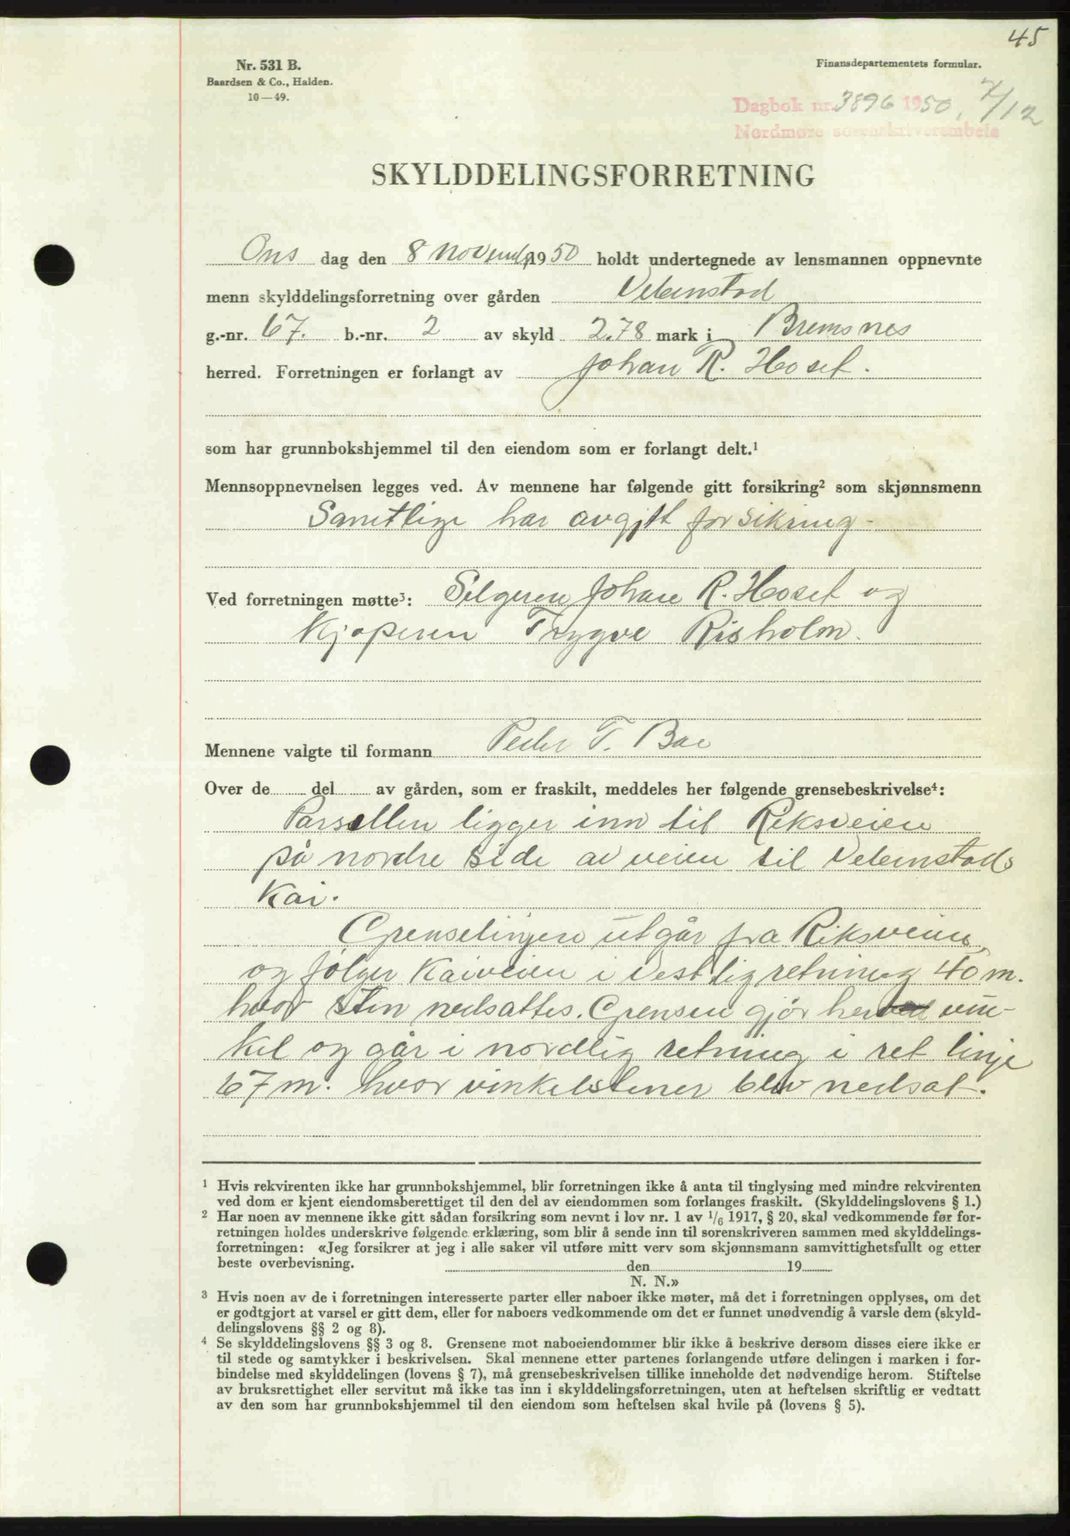 45
Nr. 531 B.
Baardsen & Co., Halden.
10—49.
Finansdepartementets formular.
Dagbok nr. 3896 1950, 7/12
Nordmøre sorenskriverembete
SKYLDDELINGSFORRETNING
Ons dag den 8 novemb. 1950 holdt undertegnede av lensmannen oppnevnte
menn skylddelingsforretning over gården Vebenstad
g.-nr. 67. b.-nr. 2 av skyld 2.78 mark i Bremsnes
herred. Forretningen er forlangt av Johan R. Hoset.
som har grunnbokshjemmel til den eiendom som er forlangt delt.¹
Mennsoppnevnelsen legges ved. Av mennene har følgende gitt forsikring² som skjønnsmenn
Samtlige har avgitt forsikring.
Ved forretningen møtte³: Selgeren Johan R. Hoset og
Kjøperen Trygve Risholm.
Mennene valgte til formann Peder T. Bae
Over de del av gården, som er fraskilt, meddeles her følgende grensebeskrivelse⁴:
Parsellen ligger inn til Riksveien
på nordre side av veien til Vebenstads
Kai.
Grenselinjen utgår fra Riksveien,
og følger Kaiveien i vestlig retning 40 m.
hvor sten nedsattes. Grensen gjør her vin-
kel og går i nordlig retning i ret linje
67 m. hvor vinkelstener blev nedsat.
¹ Hvis rekvirenten ikke har grunnbokshjemmel, blir forretningen ikke å anta til tinglysing med mindre rekvirenten
ved dom er kjent eiendomsberettiget til den del av eiendommen som forlanges fraskilt. (Skylddelingslovens § 1.)
² Har noen av mennene ikke gitt sådan forsikring som nevnt i lov nr. 1 av 1/6 1917, § 20, skal vedkommende før for-
retningen holdes underskrive følgende erklæring, som blir å sende inn til sorenskriveren sammen med skylddelings-
forretningen: «Jeg forsikrer at jeg i alle saker vil utføre mitt verv som skjønnsmann samvittighetsfullt og etter
beste overbevisning. den 19
N. N.»
³ Hvis noen av de i forretningen interesserte parter eller naboer ikke møter, må det i forretningen opplyses, om det
er godtgjort at varsel er gitt dem, eller for naboers vedkommende om det er funnet unødvendig å varsle dem (skyld-
delingslovens §§ 2 og 8).
⁴ Se skylddelingslovens §§ 3 og 8. Grensene mot naboeiendommer blir ikke å beskrive dersom disses eiere ikke er
til stede og samtykker i beskrivelsen. Skal mennene etter partenes forlangende utføre delingen i marken i for-
bindelse med skylddelingen (lovens § 7), må grensebeskrivelsen tillike inneholde det nødvendige herom. Stiftelse
av bruksrettighet eller servitut må ikke tas inn i skylddelingsforretningen, uten at heftelsen skriftlig er vedtatt
av den som har grunnbokshjemmel til den eiendom som heftelsen skal hvile på (lovens § 5).